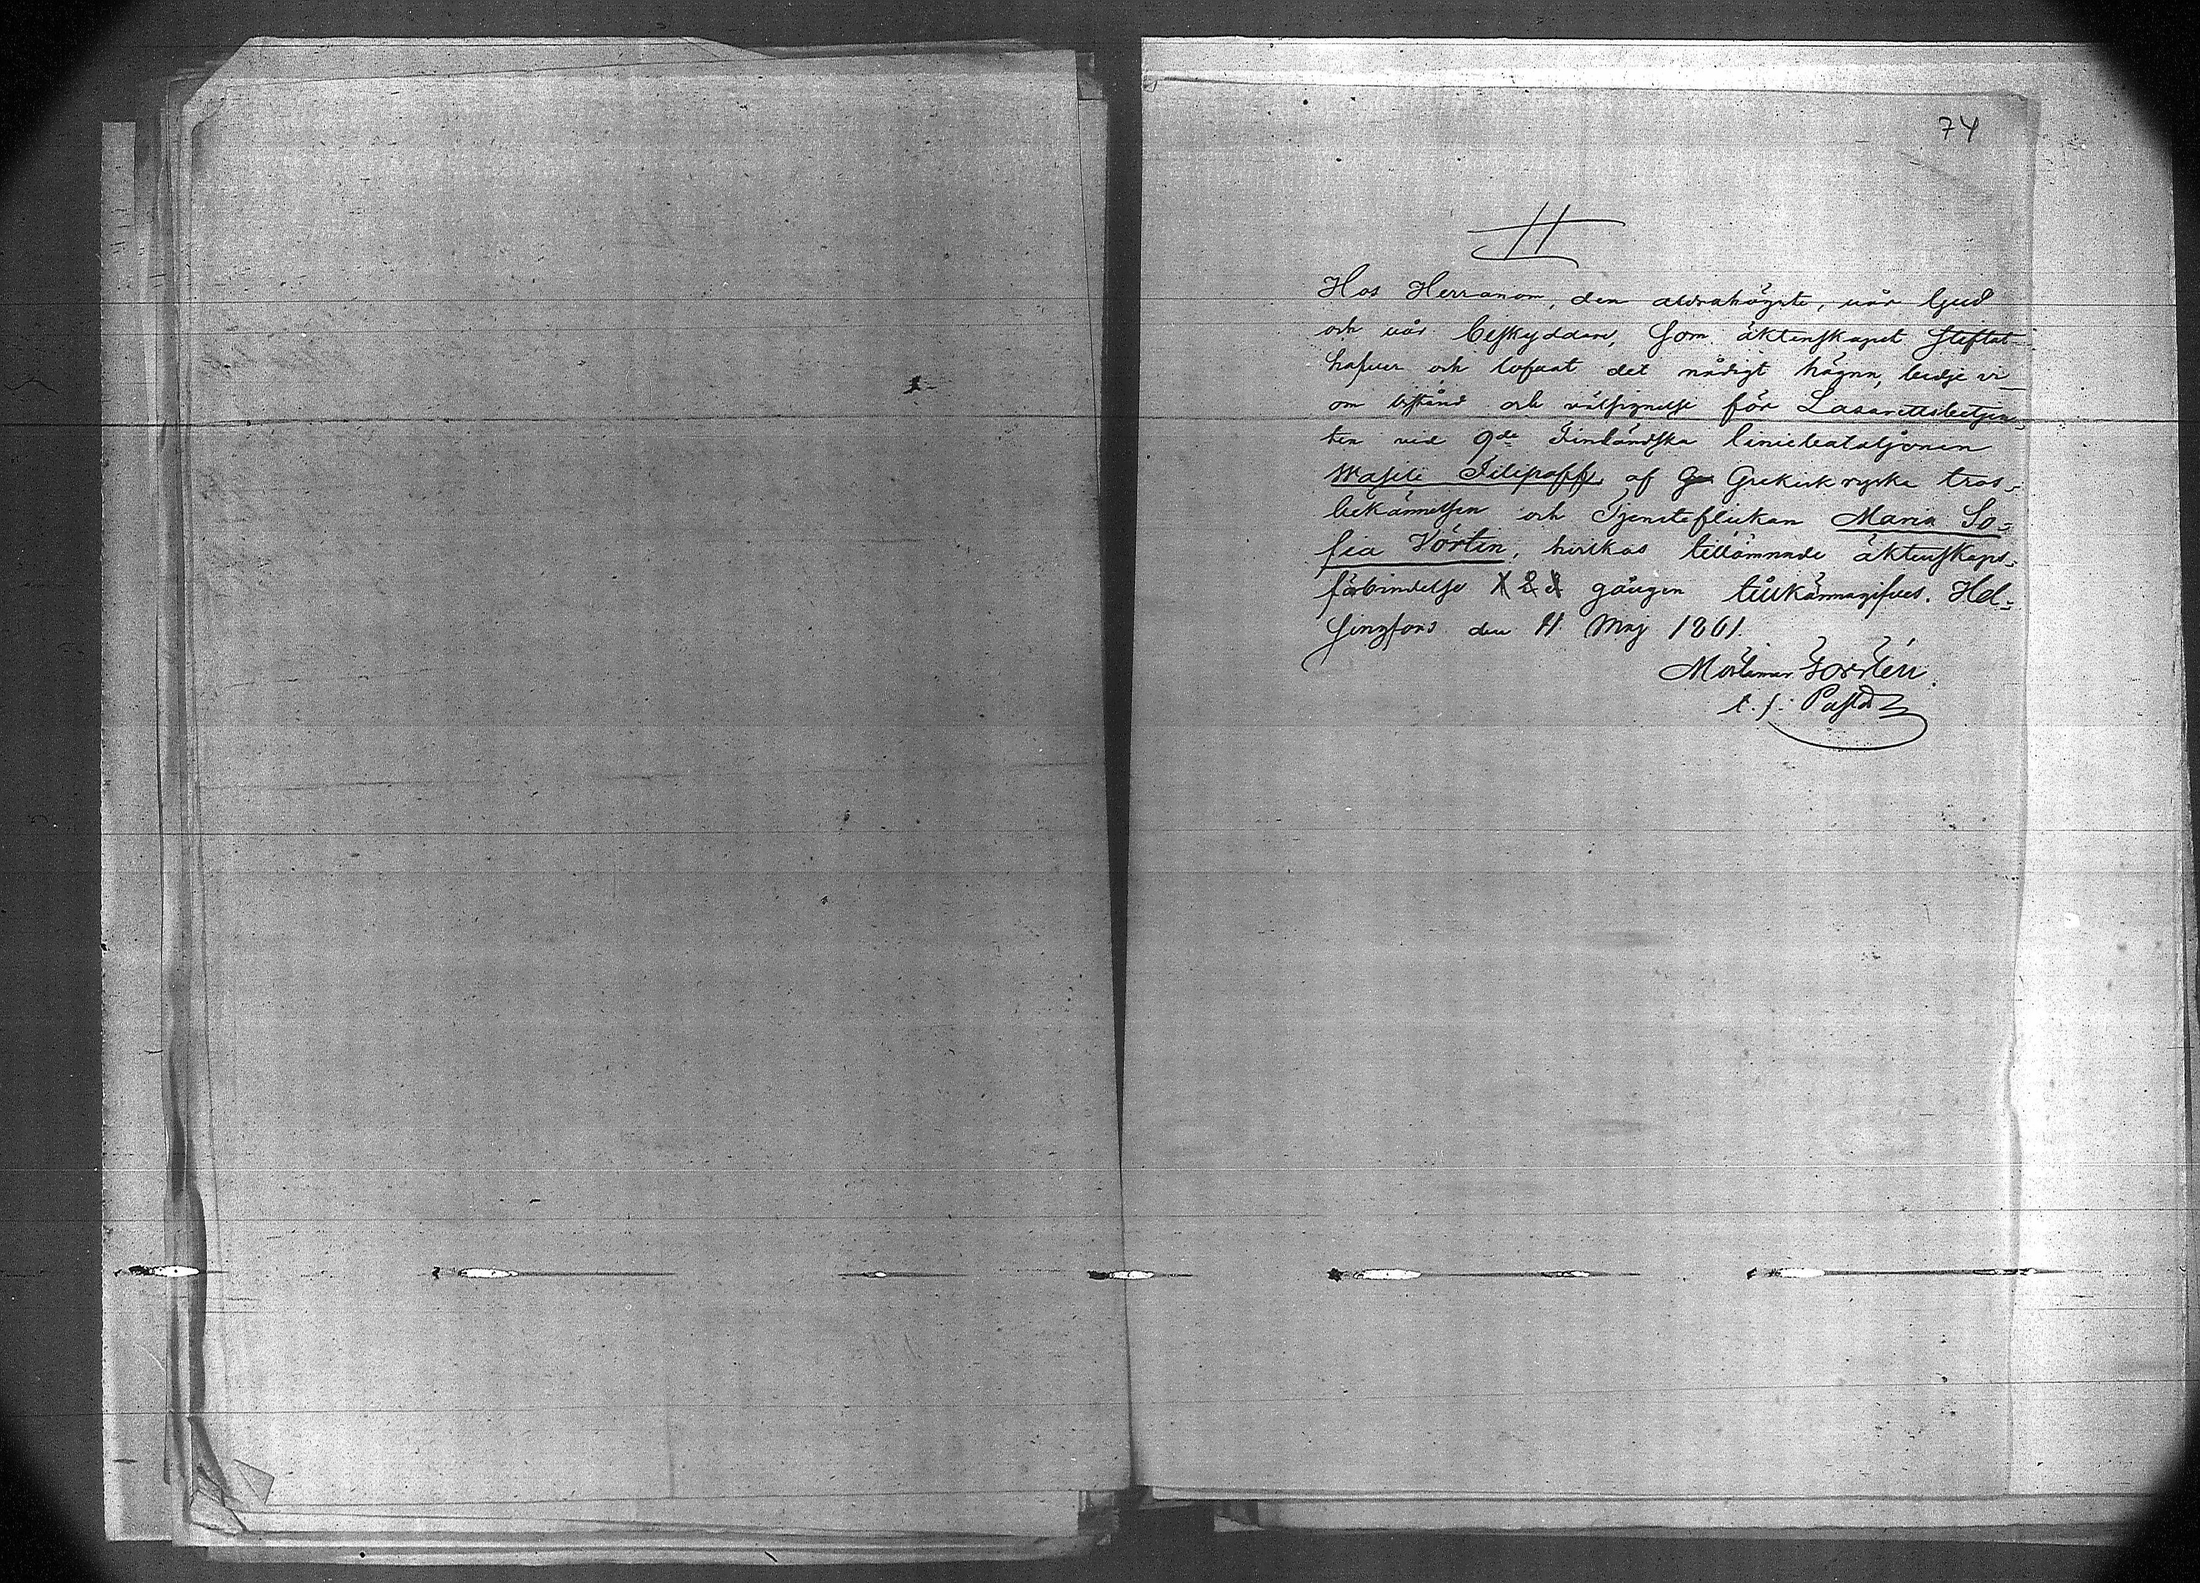 74
Hos Herranom, den aldrahögste, vår ljud
och vår beskyddare, som äktenskapet stiftat
hafver och lofvat det nådigt hägna, bedje vi
om bistånd och välsignelse för Lazarettsbetjen-
ten vid 9de Finländska liniebataljonen
Wasili Filipoff, af Grekisk ryska tros-
bekännelsen och Tjensteflickan Maria So-
fia Vörlin, hvilkas tillämnade äktenskaps-
förbindelse 1 2 & 3 gången tillkännagifves. Hel-
singfors den 11 Maj 1861.
t. f. Pastor